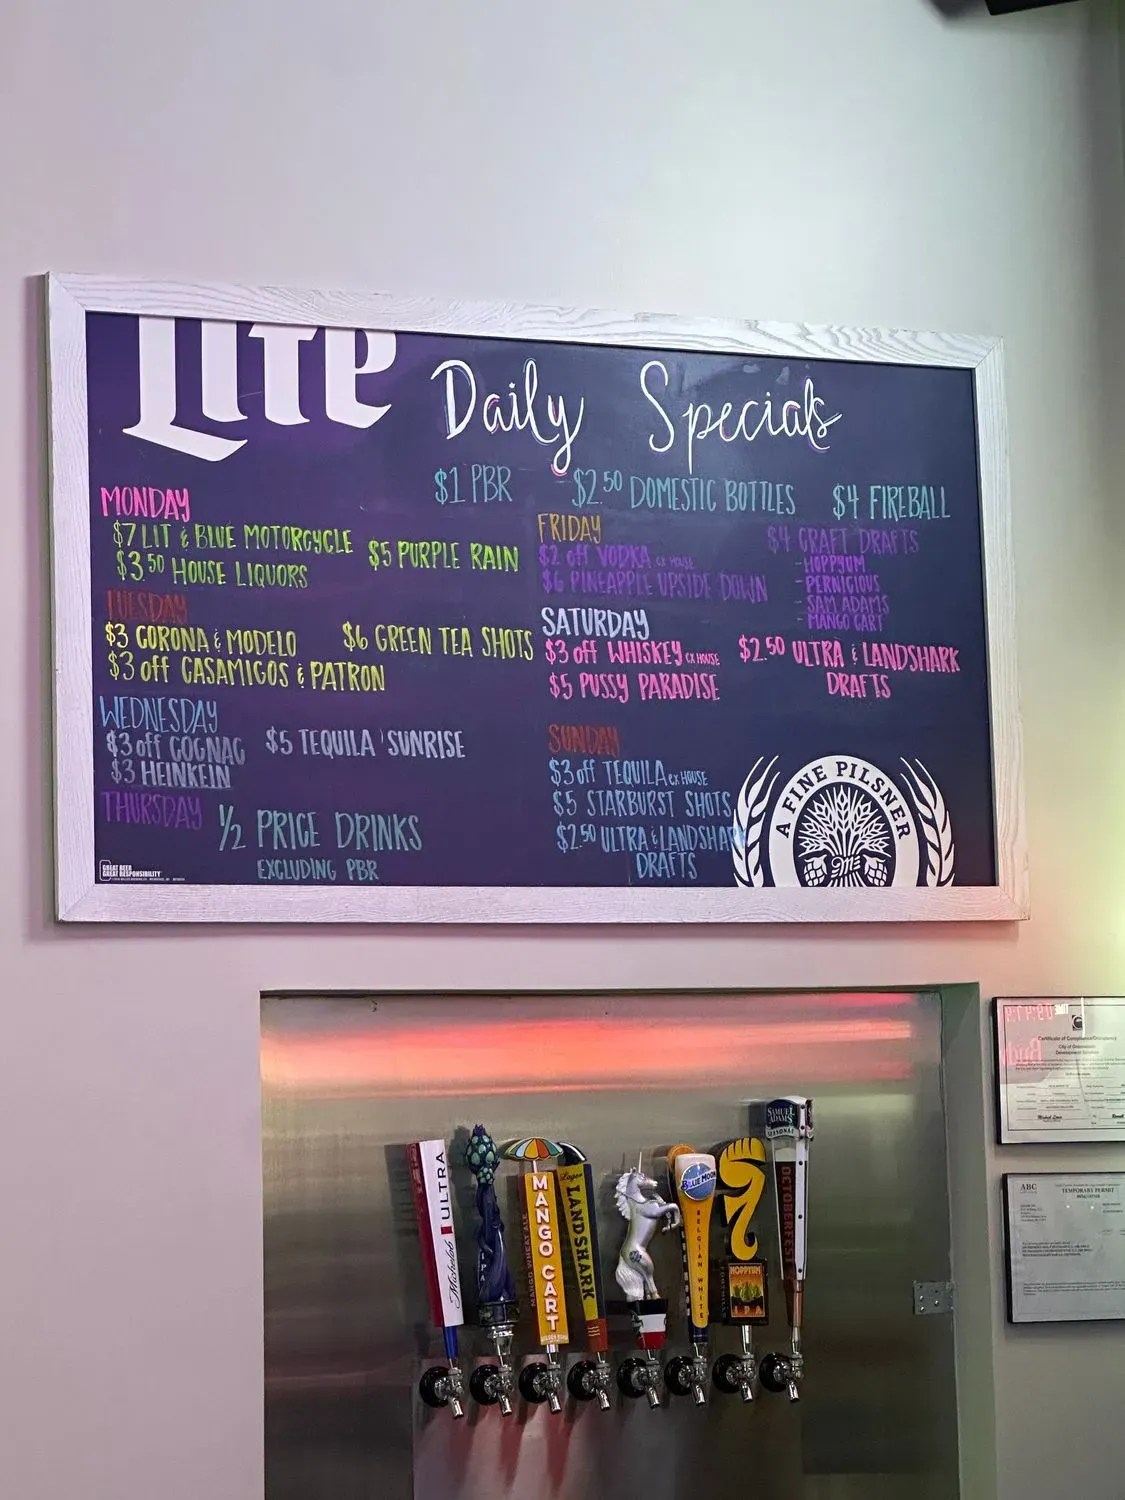 Lite
Daily Specials
$1 PBR $2.50 DOMESTIC BOTTLES $4 FIREBALL
MONDAY
$7 LIT & BLUE MOTORCYCLE $5 PURPLE RAIN
$3.50 HOUSE LIQUORS
TUESDAY
$3 CORONA & MODELO $6 GREEN TEA SHOTS
$3 off CASAMIGOS & PATRON
WEDNESDAY
$3 off COGNAC $5 TEQUILA SUNRISE
$3 HEINKEIN
THURSDAY 1/2 PRICE DRINKS
EXCLUDING PBR
GREAT BEER
GREAT RESPONSIBILITY
FRIDAY $4 CRAFT DRAFTS
$2 off VODKA EX HOUSE
$6 PINEAPPLE UPSIDE DOWN
- HOPPYUM
- PERNICIOUS
- SAM ADAMS
- MANGO CART
SATURDAY
$3 off WHISKEY EX HOUSE $2.50 ULTRA & LANDSHARK
$5 PUSSY PARADISE DRAFTS
SUNDAY
$3 off TEQUILA EX HOUSE
$5 STARBURST SHOTS
$2.50 ULTRA & LANDSHARK
DRAFTS
A FINE PILSNER
Certificate of Compliance/Occupancy
ABC
TEMPORARY PERMIT
Michelob ULTRA
IPA
MANGO CART
MANGO WHEAT ALE
Lager
LANDSHARK
BLUE MOON
BELGIAN WHITE
FOOTHILLS
HOPPYUM
IPA
SAMUEL ADAMS
SEASONAL
OCTOBERFEST